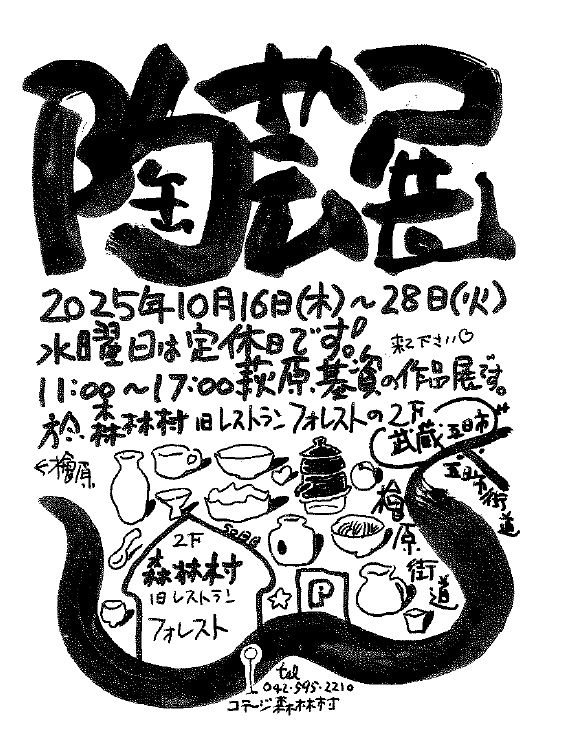 陶芸展
2025年10月16日(木)～28日(火)
水曜日は定休日です!!
来て下さい♡
11:00～17:00萩原基資の作品展です。
於.森林村 旧レストランフォレストの2F
武蔵五日市
五日市街道
←檜原
檜原街道
2F
森林村
旧レストラン
フォレスト
P
tel
042・595・2210
コテージ森林村